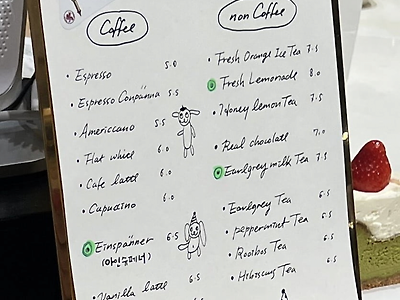 Coffee
• Espresso 5.0
• Espresso Conpánna 5.5
• Americcano 5.5
• Flat white 6.0
• Cafe latté 6.0
• Cupucino 6.0
• Einspänner 6.5
(아인슈페너)
• Vanilla latte 6.5
non Coffee
• Fresh Orange Ice Tea 7.5
• Fresh Lemonade 8.0
• Honey lemon Tea 7.5
• Real chocolate 7.0
• Earlgrey milk Tea 7.5
• Earlgrey Tea 6.5
• peppermint Tea 6.5
• Rooibos Tea 6.5
• Hibiscus Tea 6.5